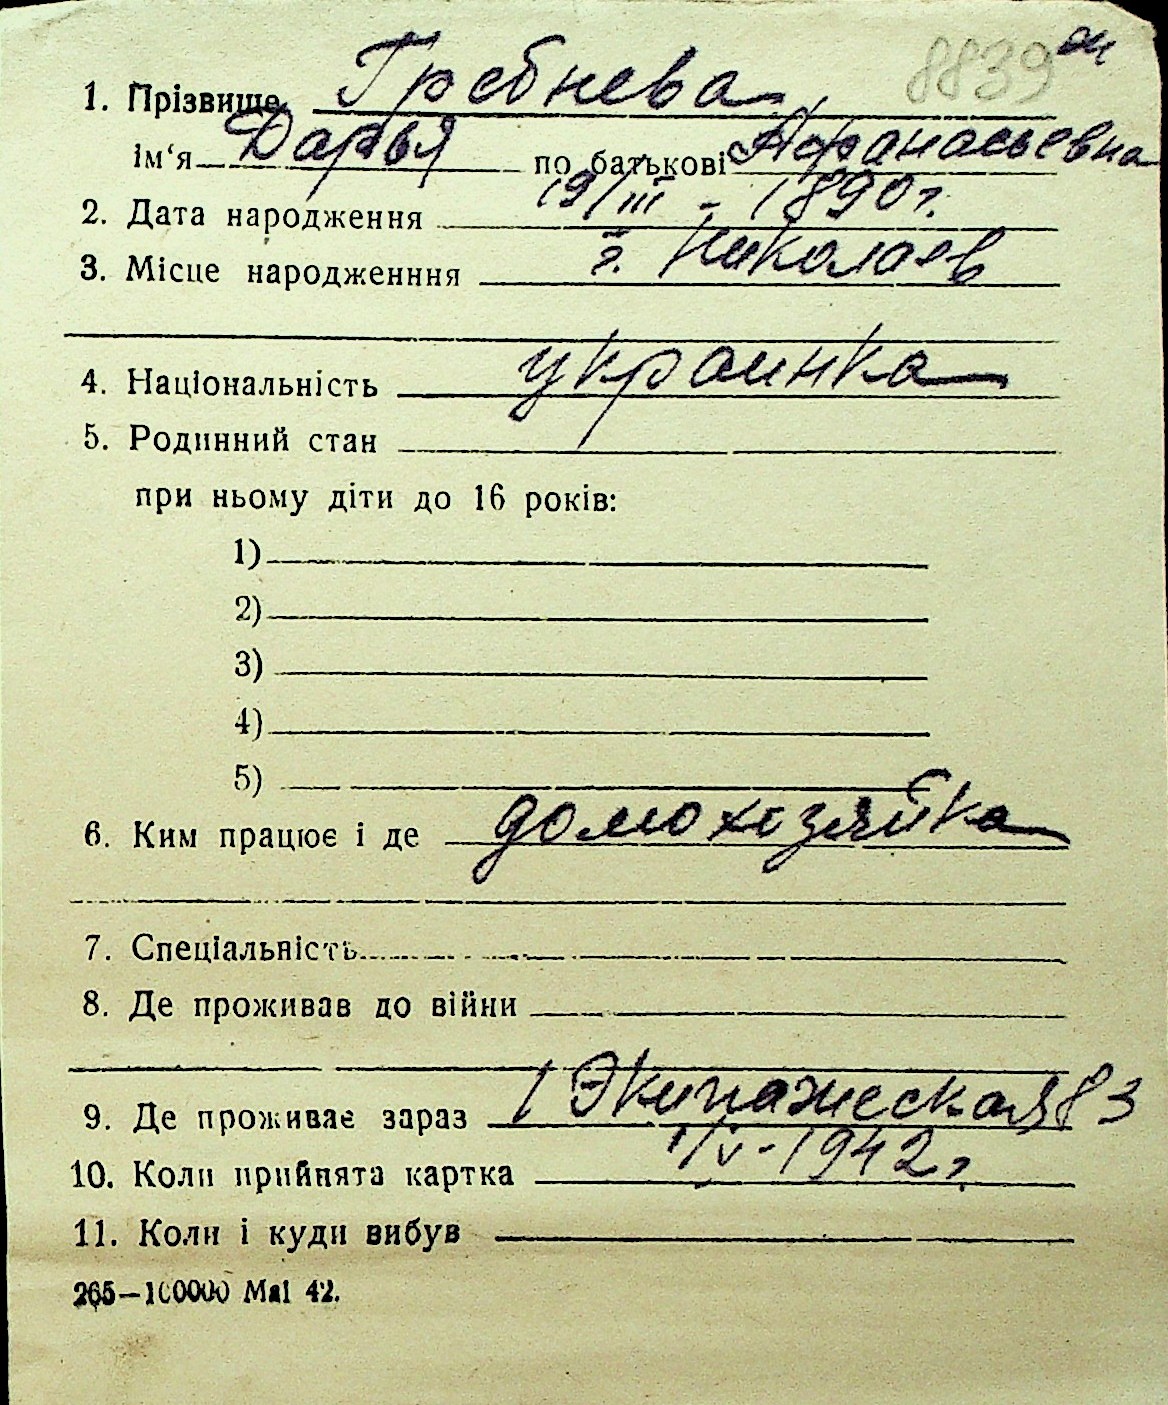 8839
1. Прізвище Гребнева
ім‘я Дарья по батькові Афанасьевна
2. Дата народження 19/III - 1890 г.
3. Місце народженння г. Николаев
4. Національність украинка
5. Родинний стан
при ньому діти до 16 років:
1)
2)
3)
4)
5)
6. Ким працює і де домохозяйка
7. Спеціальність
8. Де проживав до війни
9. Де проживає зараз 1 Экипажеская 83
10. Коли прийнята картка 1/V-1942 г.
11. Коли і куди вибув
265—100000 Маі 42.